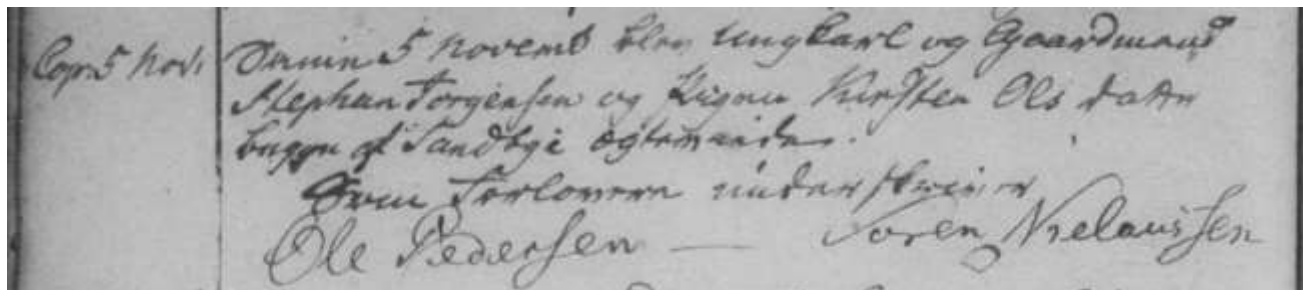 Cop: 5 Nov: Denne 5 Novemb blev Ungkarl og Gaardmand
Stephan Jørgensen og Pigen Kirsten Ols datter
begge af Sandbye ægteviede.
Som Forlovere underskriver
Ole Pedersen — Soren Nielaussen